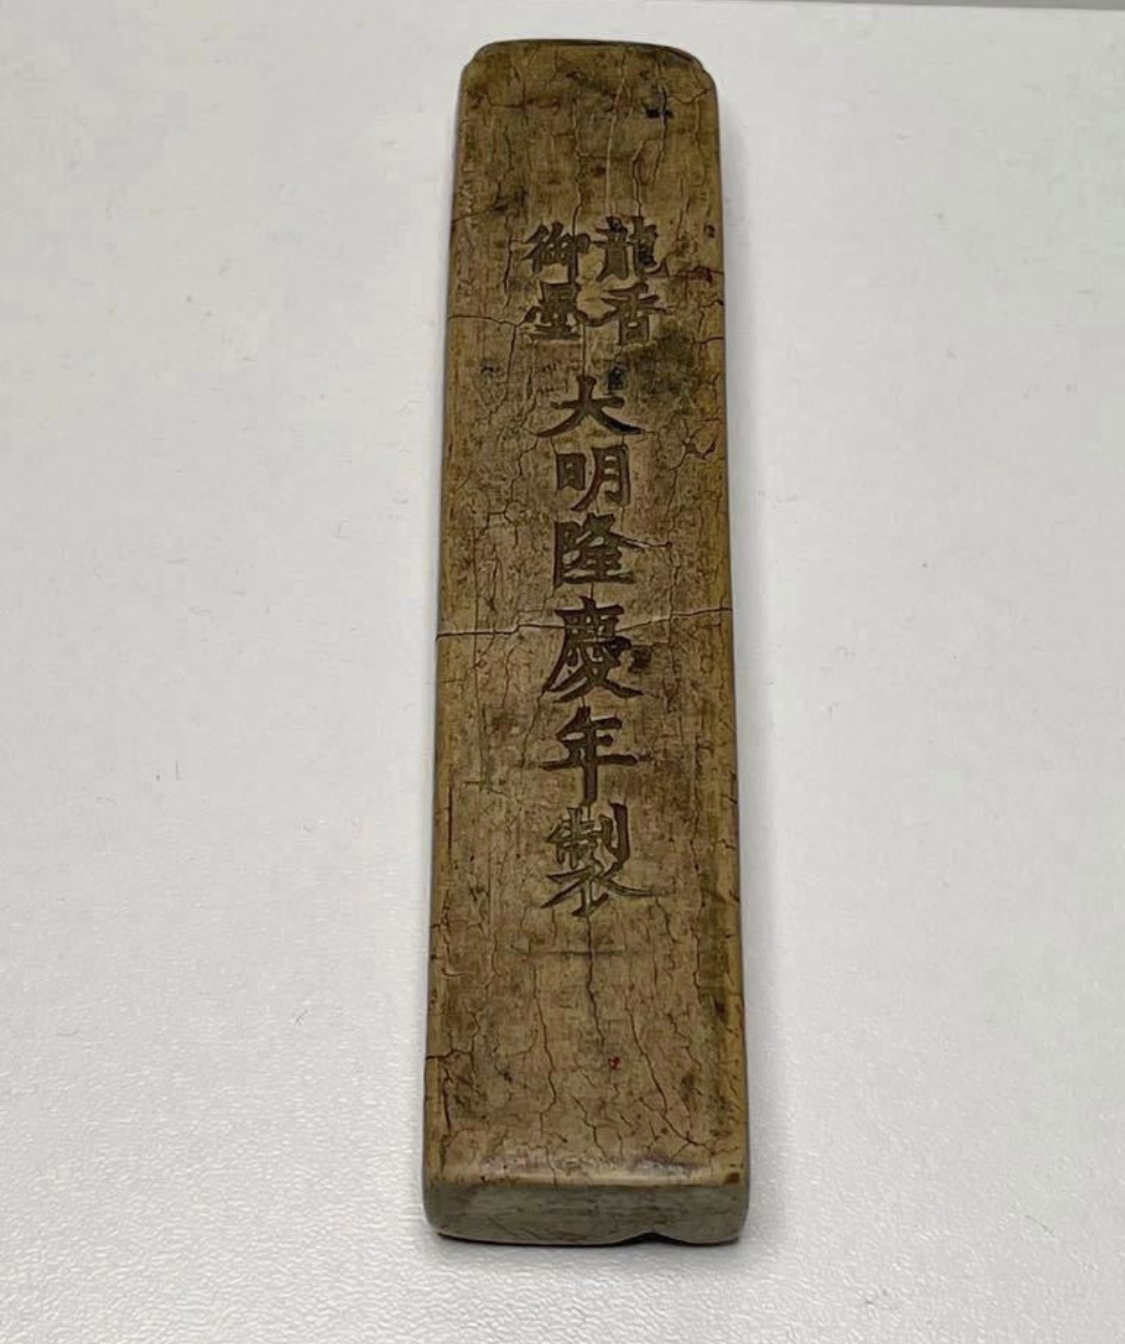 龍香
御墨
大明隆慶年製